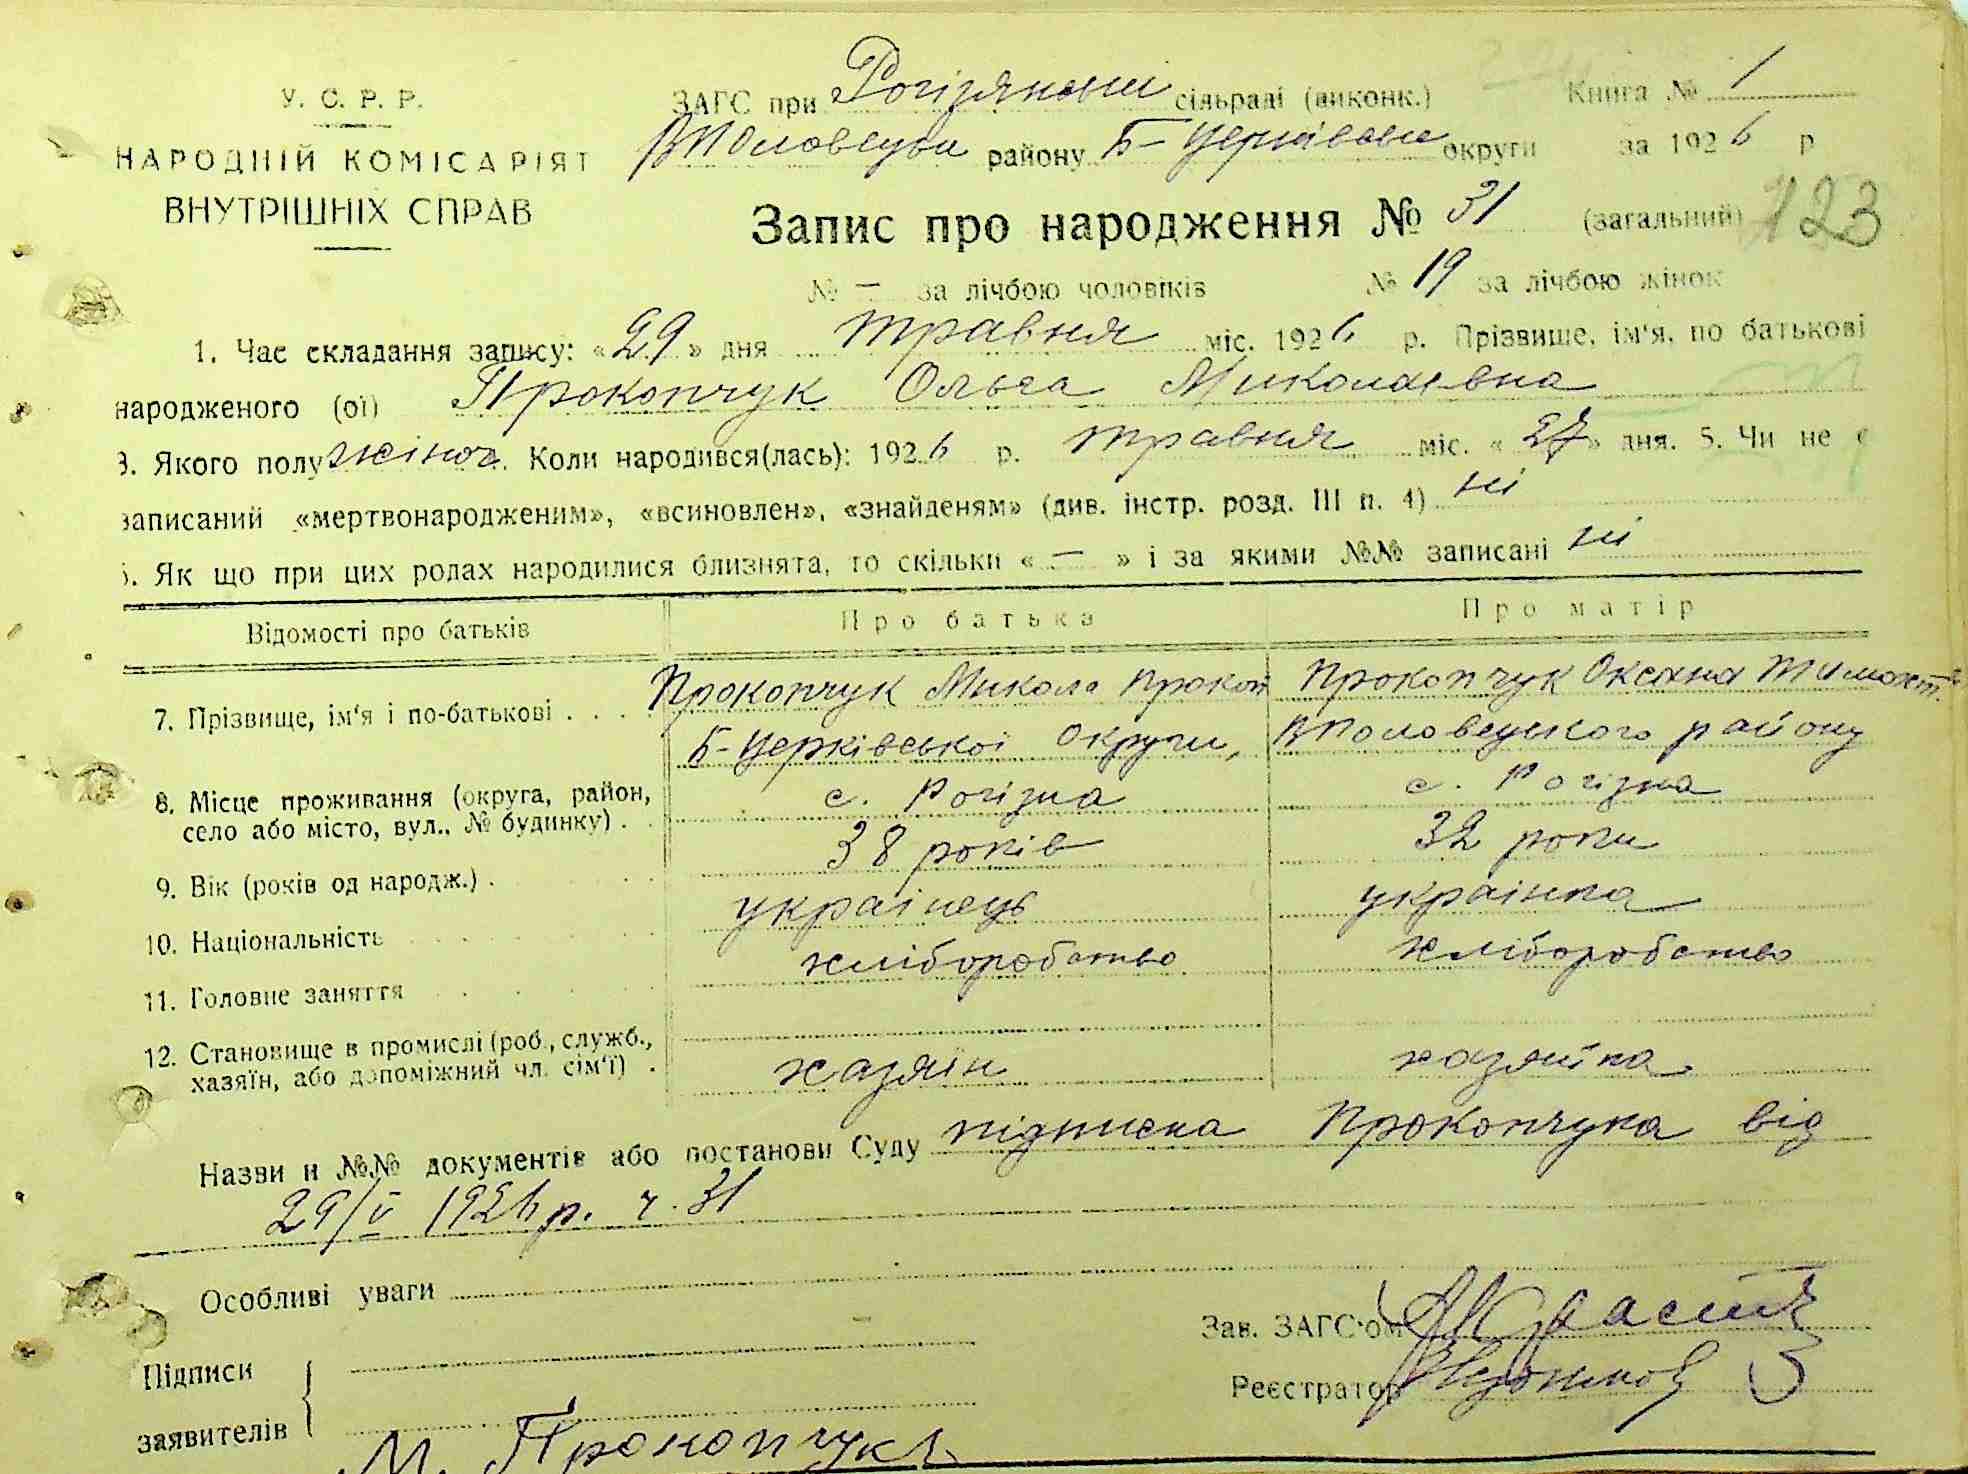 У. С. Р. Р.
НАРОДНІЙ КОМІСАРІЯТ
ВНУТРІШНІХ СПРАВ
ЗАГС при Рогізянській сільраді (виконк.) Книга № 1
ВПоловецьк району Б-Церківськ округи за 1926 р
Запис про народження № 31 (загальний) 123
№ — за лічбою чоловіків № 19 за лічбою жінок
1. Час складання запису: «29» дня травня міс. 1926 р. Прізвище, ім'я, по батькові
народженого (ої) Прокопчук Ольга Миколаевна
3. Якого полу жіноч. Коли народився(лась): 1926 р. травня міс. «27» дня. 5. Чи не є
записаний «мертвонародженим», «всиновлен», «знайденям» (див. інстр. розд. III п. 4) ні
6. Як що при цих родах народилися близнята, то скільки « — » і за якими №№ записані ні
Відомості про батьків Про батька Про матір
7. Прізвище, ім'я і по-батькові . . . . Прокопчук Микола Прокоп Прокопчук Оксана Тимохт.
Б-Церківської Округи, ВПоловецького району
8. Місце проживання (округа, район, с. Рогізна с. Рогізна
село або місто, вул., № будинку) . .
9. Вік (років од народж.) . 38 років 32 роки
10. Національність украінець украінка
11. Головне заняття хліборобство хліборобство
12. Становище в промислі (роб., служб.,
хазяїн, або допоміжний чл. сім'ї) . хазяін хазяйка
Назви и №№ документів або постанови Суду підписка Прокопчука від
29/V 1926 р. ч. 31
Особливі уваги
Зав. ЗАГС'ом
Підписи
Реєстратор
заявителів
М. Прокопчук